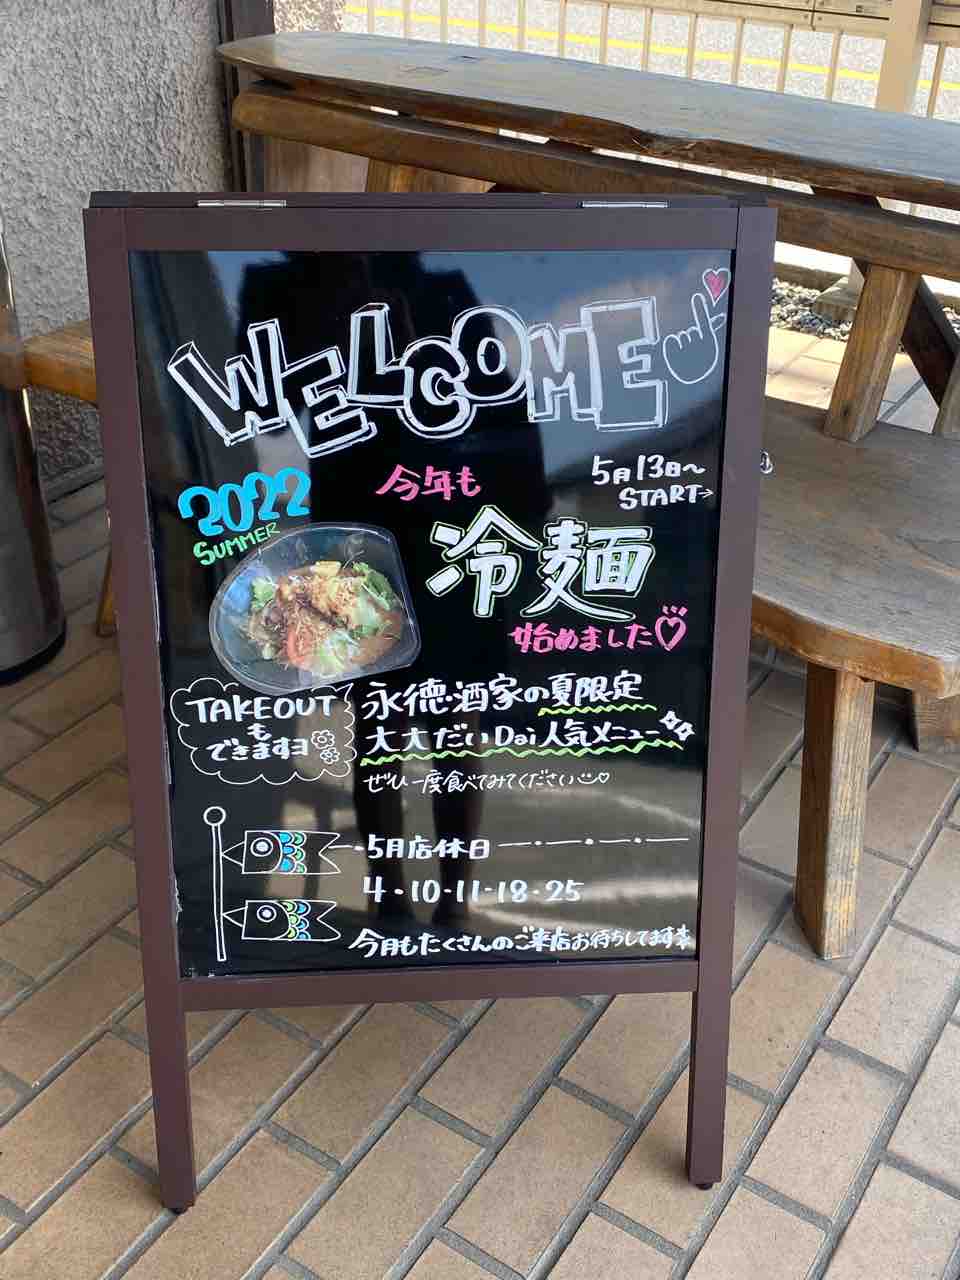 WELCOME
2022
SUMMER
今年も
5月13日〜
START→
冷麺
始めました♡
TAKEOUT
も
できますヨ
永徳酒家の夏限定
大大だいDai人気メニュー
ぜひ一度食べてみてください♡
5月店休日
4・10・11・18・25
今月もたくさんのご来店お待ちしてます